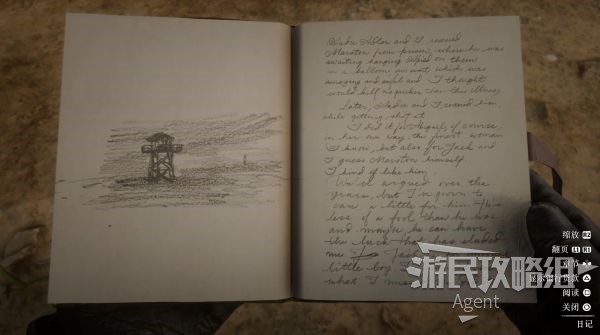 Sadie Adler and I rescued
Marston from prison, where he was
awaiting hanging. Spied on them
in a balloon on went which was
amazing and awful and I thought
would kill me quicker than this illness.
Later, Sadie and I rescued him,
while getting shot at.
I did it for Abigail, of course
in her own way, the finest woman
I know, but also for Jack and
I guess Marston himself.
I kind of like him.
We've argued over the
years, but I've grown to
care a little for him. He's
less of a fool than he was
and maybe he can have
the luck that has eluded
me
little boy
what I
游民攻略组
Agent
缩放 R2
翻页 L1 R1
阅读
关闭
日记